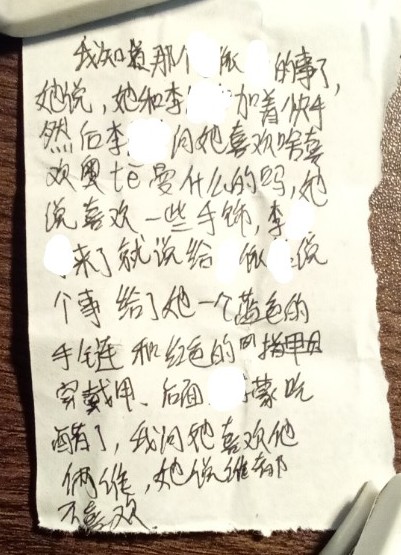 我知道那个 依 的事了,
她说,她和李 加着快手
然后李 问她喜欢啥喜
欢奥te曼什么的吗,她
说喜欢一些手饰,李
来了就说给 依 说
个事 给了她一个蓝色的
手链 和红色的 指甲
穿戴甲、后面 蒙吃
醋了,我问她喜欢他
俩谁,她说谁都
不喜欢